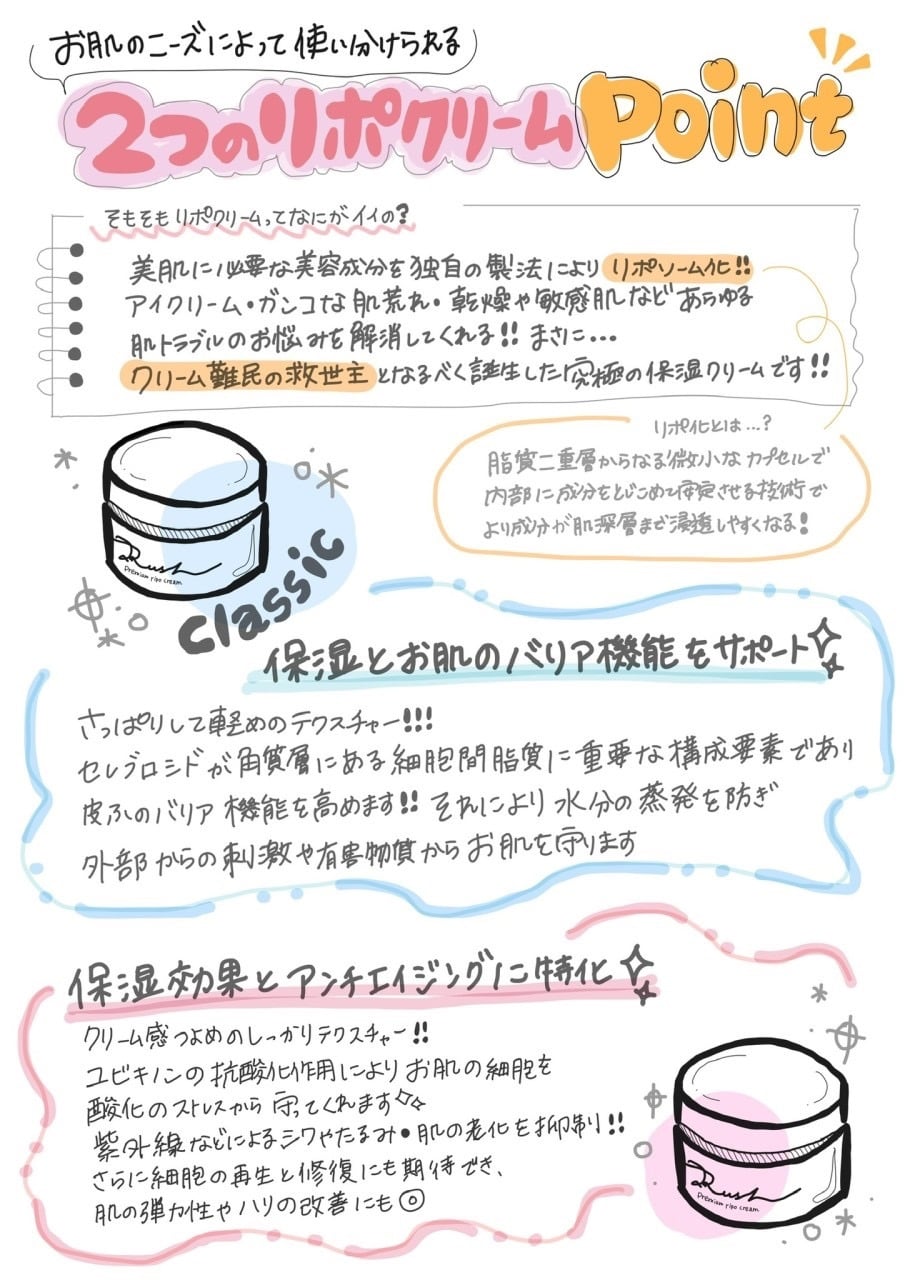 お肌のニーズによって使い分けられる
2つのリポクリームPoint
そもそもリポクリームってなにがイイの?
美肌に必要な美容成分を独自の製法によりリポソーム化!!
アイクリーム・ガンコな肌荒れ・乾燥や敏感肌などあらゆる
肌トラブルのお悩みを解消してくれる!!まさに...
クリーム難民の救世主となるべく誕生した究極の保湿クリームです!!
リポ化とは...?
脂質二重層からなる微小なカプセルで
内部に成分をとじこめて安定させる技術で
より成分が肌深層まで浸透しやすくなる!
Rush
Premium ripo cream
classic
保湿とお肌のバリア機能をサポート
さっぱりして軽めのテクスチャー!!!
セレブロシドが角質層にある細胞間脂質に重要な構成要素であり
皮ふのバリア機能を高めます!!それにより水分の蒸発を防ぎ
外部からの刺激や有害物質からお肌を守ります
保湿効果とアンチエイジングに特化
クリーム感つよめのしっかりテクスチャー!!
ユビキノンの抗酸化作用によりお肌の細胞を
酸化のストレスから守ってくれます
紫外線などによるシワやたるみ・肌の老化を抑制!!
さらに細胞の再生と修復にも期待でき、
肌の弾力性やハリの改善にも◎
Rush
Premium ripo cream